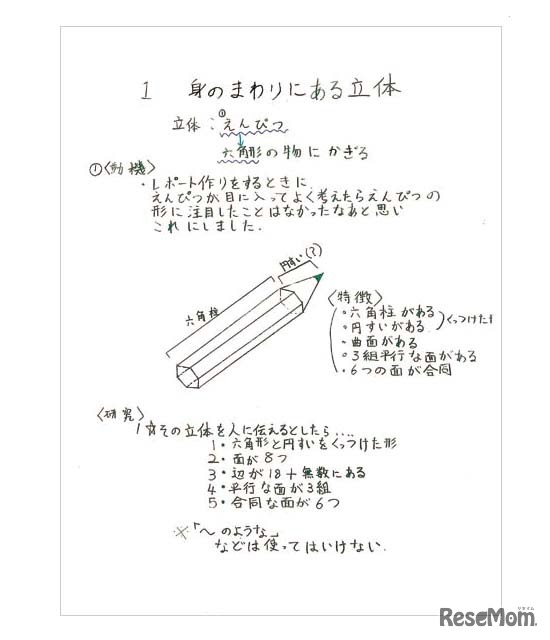 1 身のまわりにある立体
立体:①えんぴつ
六角形の物にかぎる
①〈動機〉
・レポート作りをするときに、
えんぴつが目に入ってよく考えたらえんぴつの
形に注目したことはなかったなあと思い
これにしました.
円すい(?)
六角柱
〈特徴〉
・六角柱がある
・円すいがある
くっつけた形
・曲面がある
・3組平行な面がある
・6つの面が合同
〈研究〉
その立体を人に伝えるとしたら....
1・六角形と円すいをくっつけた形
2・面が8つ
3・辺が18+無数にある
4・平行な面が3組
5・合同な面が6つ
※「~のような」
などは使ってはいけない.
リセマム
ReseMom.